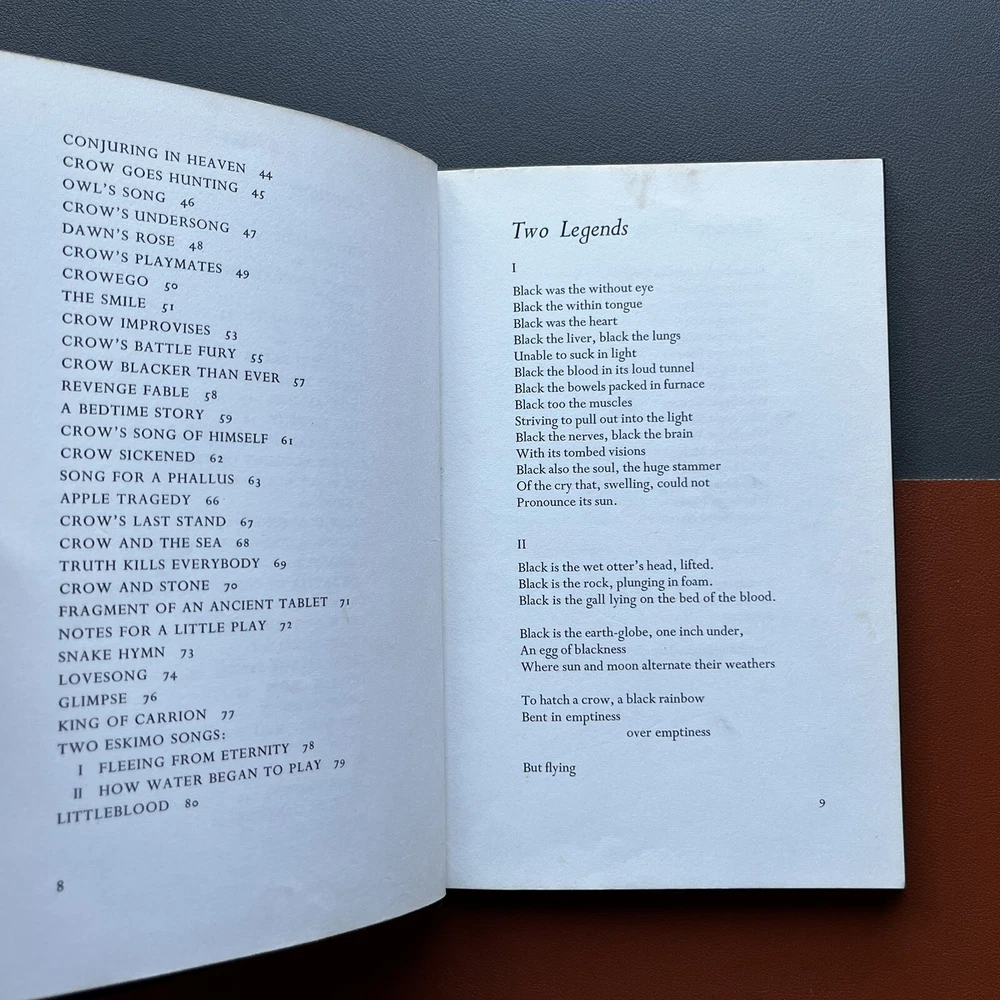 CONJURING IN HEAVEN 44
CROW GOES HUNTING 45
OWL'S SONG 46
CROW'S UNDERSONG 47
DAWN'S ROSE 48
CROW'S PLAYMATES 49
CROWEGO 50
THE SMILE 51
CROW IMPROVISES 53
CROW'S BATTLE FURY 55
CROW BLACKER THAN EVER 57
REVENGE FABLE 58
A BEDTIME STORY 59
CROW'S SONG OF HIMSELF 61
CROW SICKENED 62
SONG FOR A PHALLUS 63
APPLE TRAGEDY 66
CROW'S LAST STAND 67
CROW AND THE SEA 68
TRUTH KILLS EVERYBODY 69
CROW AND STONE 70
FRAGMENT OF AN ANCIENT TABLET 71
NOTES FOR A LITTLE PLAY 72
SNAKE HYMN 73
LOVESONG 74
GLIMPSE 76
KING OF CARRION 77
TWO ESKIMO SONGS:
I FLEEING FROM ETERNITY 78
II HOW WATER BEGAN TO PLAY 79
LITTLEBLOOD 80
8
Two Legends
I
Black was the without eye
Black the within tongue
Black was the heart
Black the liver, black the lungs
Unable to suck in light
Black the blood in its loud tunnel
Black the bowels packed in furnace
Black too the muscles
Striving to pull out into the light
Black the nerves, black the brain
With its tombed visions
Black also the soul, the huge stammer
Of the cry that, swelling, could not
Pronounce its sun.
II
Black is the wet otter's head, lifted.
Black is the rock, plunging in foam.
Black is the gall lying on the bed of the blood.
Black is the earth-globe, one inch under,
An egg of blackness
Where sun and moon alternate their weathers
To hatch a crow, a black rainbow
Bent in emptiness
over emptiness
But flying
9